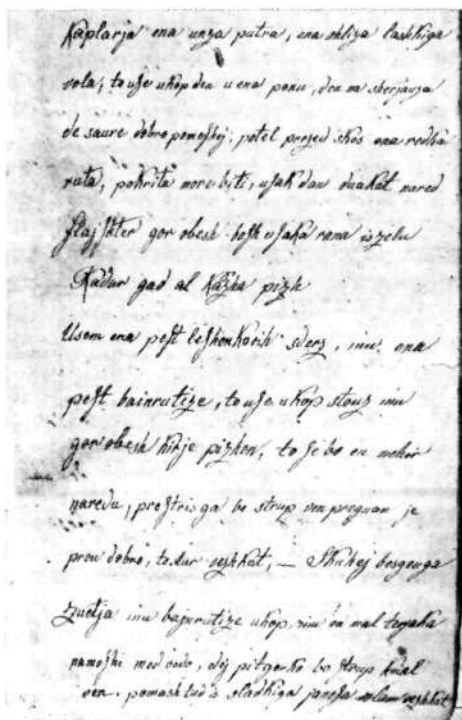 Kaplarja ena unza putra, ena obliza lashkiga
vola, to use ukop den u eno ponu, den na sherjauza
de saure dobro pomeshej; potel prezed skos ena redka
ruta, pokrita more biti, usak dan duakat nared
flajshter gor obesh bosh usaka rana iszelu
Kadar gad al Kazha pizh
Usem ena pest leshounkovih sders, inu ena
pest bainrutize, to use ukop stouz inu
gor obesh kir je pizhen, to se bo en mehir
naredu, prestris ga bo strup ven pregnan je
prou dobro, to sturr vezhkat, — Skuhej besgouga
zuetja inu bajnrutize ukop, inu en mal terjaka
namoshi med vodo, dej pit gorko bo strup knal
ven. pomash tud s sladkiga janesha vezhkat